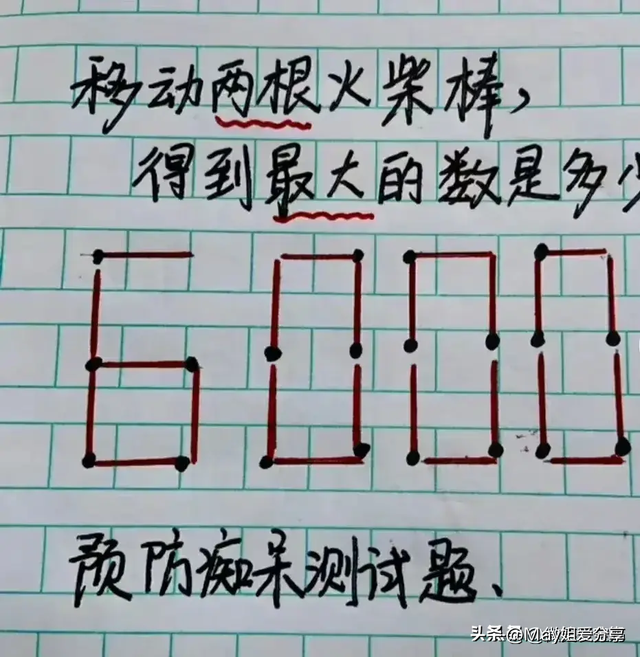 移动两根火柴棒,
得到最大的数是多少
6000
预防痴呆测试题、
头条 @May姐爱分享